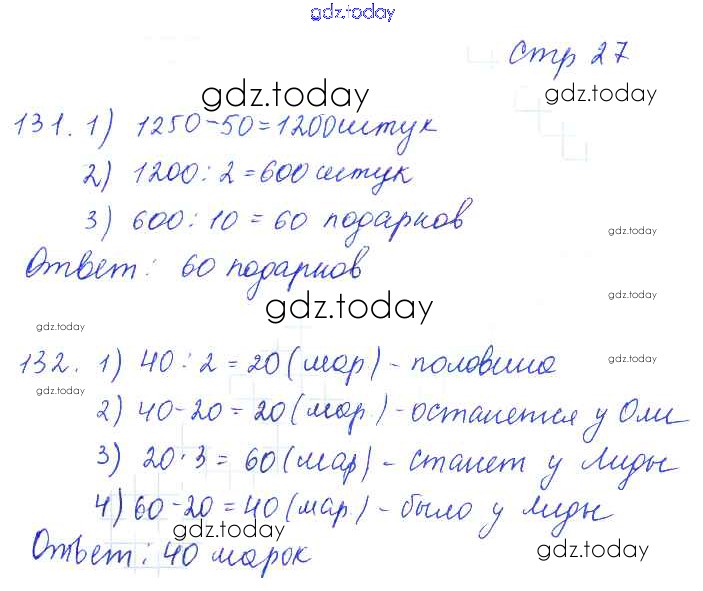 gdz.today
Стр 27
gdz.today
gdz.today
131. 1) 1250-50=1200штук
2) 1200:2=600штук
3) 600:10=60 подарков
gdz.today
Ответ: 60 подарков
gdz.today
gdz.today
gdz.today
132. 1) 40:2=20(мар)-половина
gdz.today
gdz.today
2) 40-20=20(мар.)-останется у Оли
3) 20·3=60(мар)-станет у Лиды
4) 60-20=40(мар.)-было у Лиды
gdz.today
Ответ: 40 марок
gdz.today